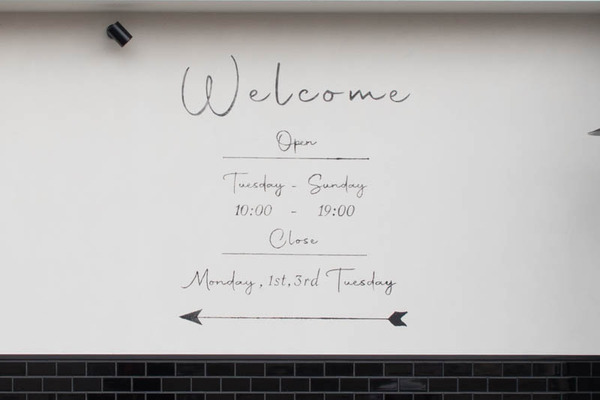 Welcome
Open
Tuesday - Sunday
10:00 - 19:00
Close
Monday, 1st, 3rd Tuesday